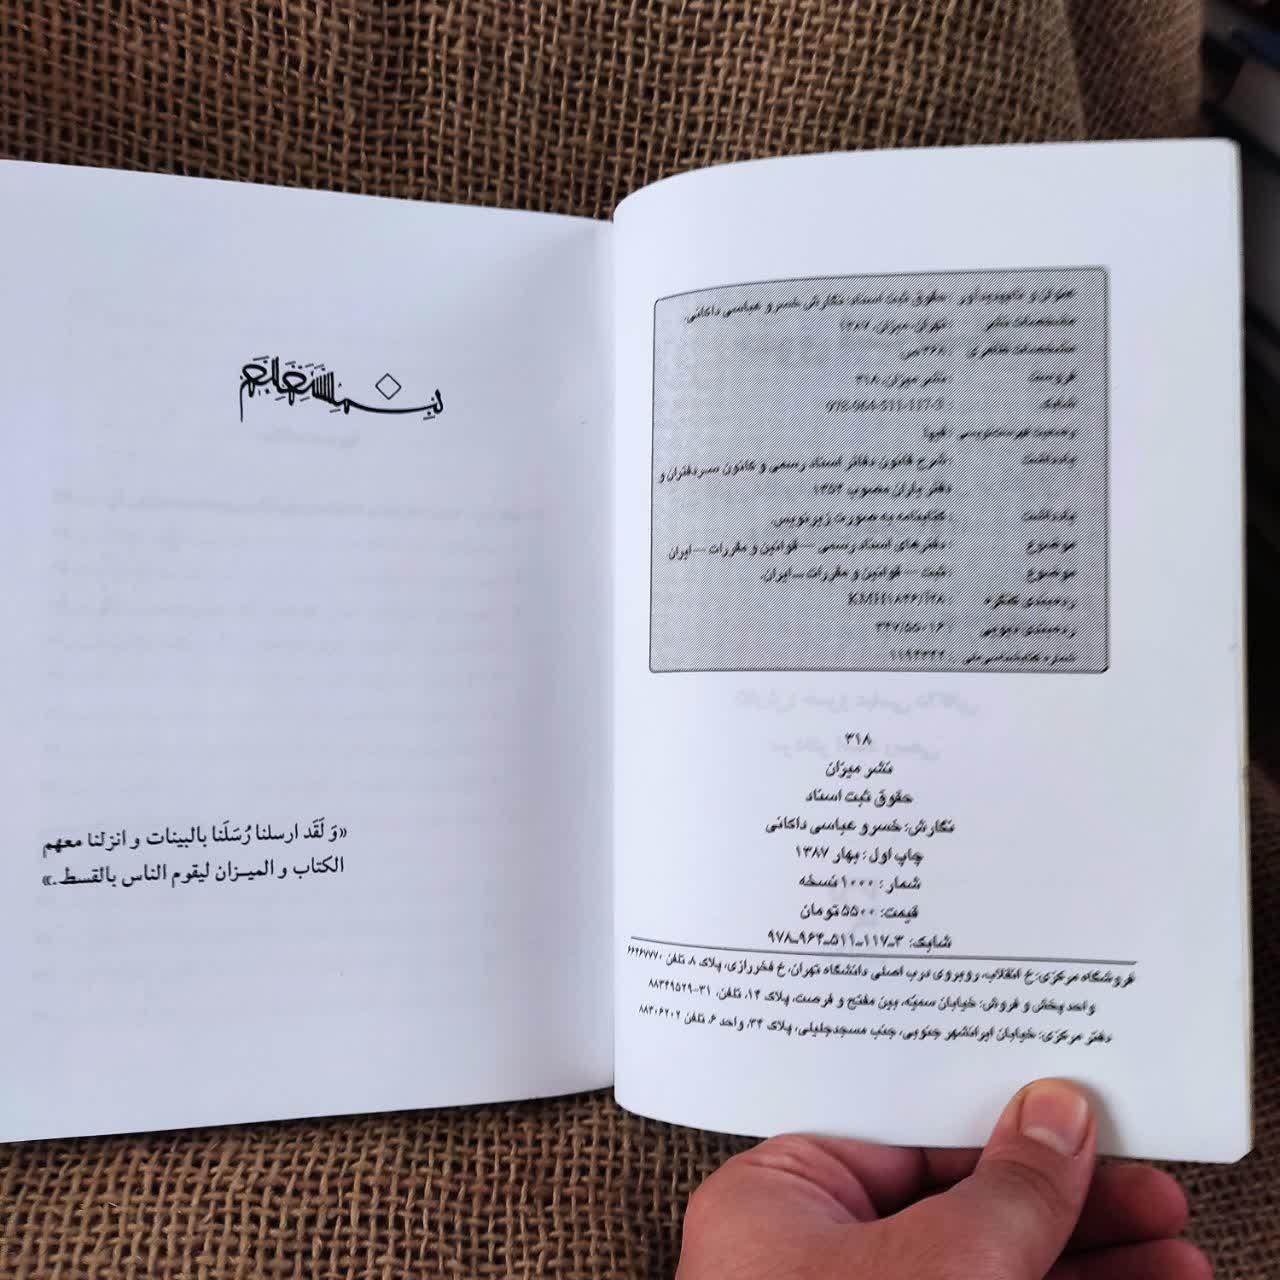 عنوان و نام‌پدیدآور : حقوق ثبت اسناد/ نگارش خسرو عباسی داکانی.
مشخصات نشر : تهران، میزان، ۱۳۸۷
مشخصات ظاهری : ۳۶۸ ص.
فروست : نشر میزان، ۳۱۸
شابک : 978-964-511-117-3
وضعیت فهرست‌نویسی : فیپا
یادداشت : شرح قانون دفاتر اسناد رسمی و کانون سردفتران و
دفتر یاران مصوب ۱۳۵۴
یادداشت : کتابنامه به صورت زیرنویس.
موضوع : دفترهای اسناد رسمی — قوانین و مقررات — ایران
موضوع : ثبت — قوانین و مقررات — ایران.
رده‌بندی کنگره : KMH۱۸۴۶/آ۲۸
رده‌بندی دیویی : ۳۴۷/۵۵۰۱۶
شماره کتابشناسی ملی : ۱۱۹۴۳۴۲
۳۱۸
نشر میزان
حقوق ثبت اسناد
نگارش: خسرو عباسی داکانی
چاپ اول: بهار ۱۳۸۷
شمار: ۱۰۰۰ نسخه
قیمت: ۵۵۰۰ تومان
شابک: ۳-۱۱۷-۵۱۱-۹۶۴-۹۷۸
فروشگاه مرکزی: خ انقلاب، روبروی درب اصلی دانشگاه تهران، خ فخررازی، پلاک ۸، تلفن ۶۶۴۶۷۷۷۰
واحد پخش و فروش: خیابان سمیه، بین مفتح و فرصت، پلاک ۱۴، تلفن، ۳۱-۸۸۳۴۹۵۲۹
دفتر مرکزی: خیابان ایرانشهر جنوبی، جنب مسجدجلیلی، پلاک ۳۴، واحد ۶، تلفن ۸۸۳۰۶۲۰۲
بسم الله الرحمن الرحیم
«وَ لَقَد ارسلنا رُسَلَنا بالبینات و انزلنا معهم
الکتاب و المیزان لیقوم الناس بالقسط.»